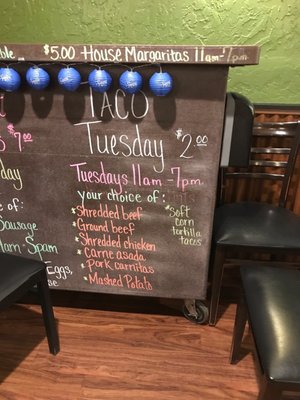 $5.00 House Margaritas 11am - 7pm
TACO
Tuesday $2.00
7.00
Tuesdays 11am - 7pm
your choice of:
* Shredded beef
* Ground beef
* Shredded chicken
* Carne asada
* Pork carnitas
* Mashed Potato
* Soft
corn
tortilla
tacos
of:
Sausage
Ham Spam
Eggs,